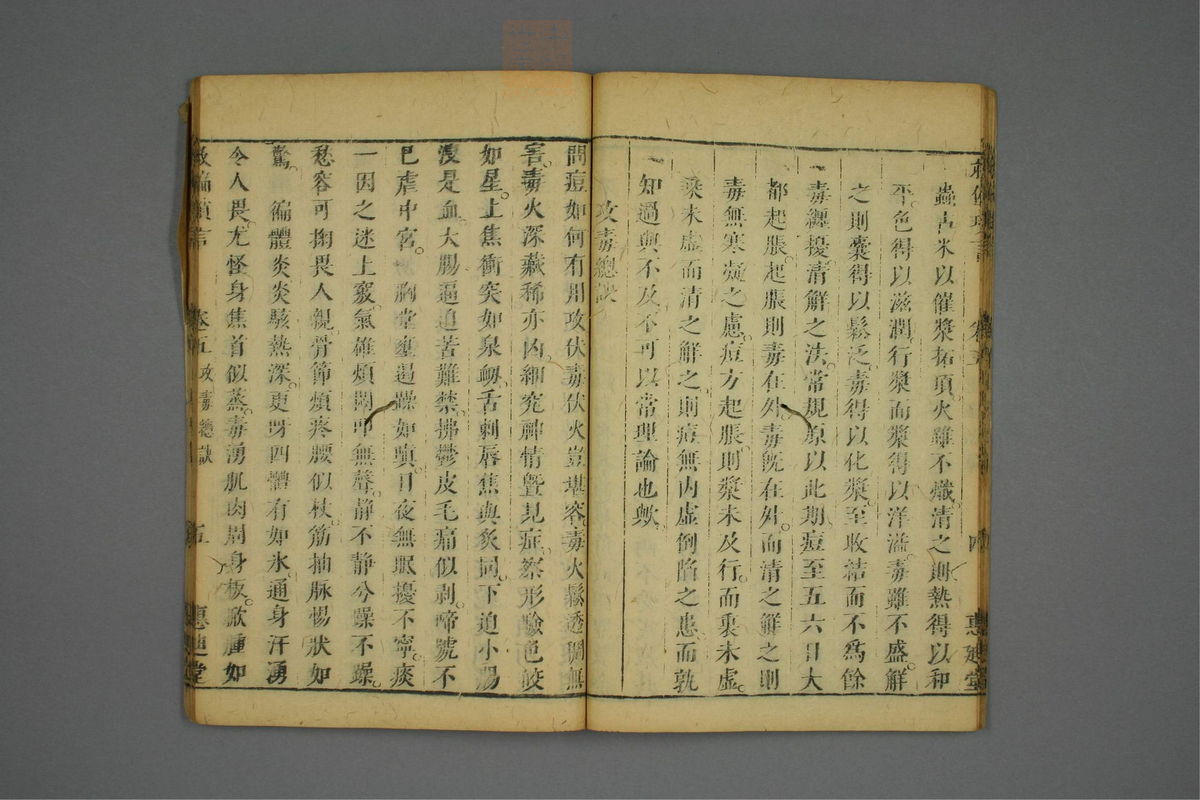 蟲吉米以催漿拓頂火雖不熾清之則熱得以和
平色得以滋潤行漿而漿得以洋溢毒雖不盛解
之則囊得以鬆泛毒得以化漿至收結而不為餘
毒纏擾清解之法常規原以此期痘至五六日大
都起脹起脹則毒在外毒既在外而清之解之則
毒無寒凝之慮痘方起脹則漿未及行而裏未虛
乘未虛而清之解之則痘無內虛倒陷之患而孰
知過與不及不可以常理論也歟
攻毒總訣
問痘如何有用攻伏毒伏火豈堪容毒火鬆透稠無
害毒火深藏稀亦凶細究神情暨見症察形驗色皎
如星上焦衝突如泉岰舌剌唇焦與炙同下迫小腸
溲是血大腸逼迫苦難禁拂鬱皮毛痛似剥啼號不
已虐中宮胸堂壅遏躁如瘨日夜無眠擾不寧痰
一因之迷上竅氣雄煩悶叫無聲靜不靜兮躁不躁
愁容可掬畏人親骨節煩疼腰似杖筋抽脉惕狀如
驚徧體炎炎駭熱深更訝四體有如氷通身汗湧
令人畏尤怪身焦首似蒸毒湧肌肉周身板掀腫如
卷五攻毒總訣
五